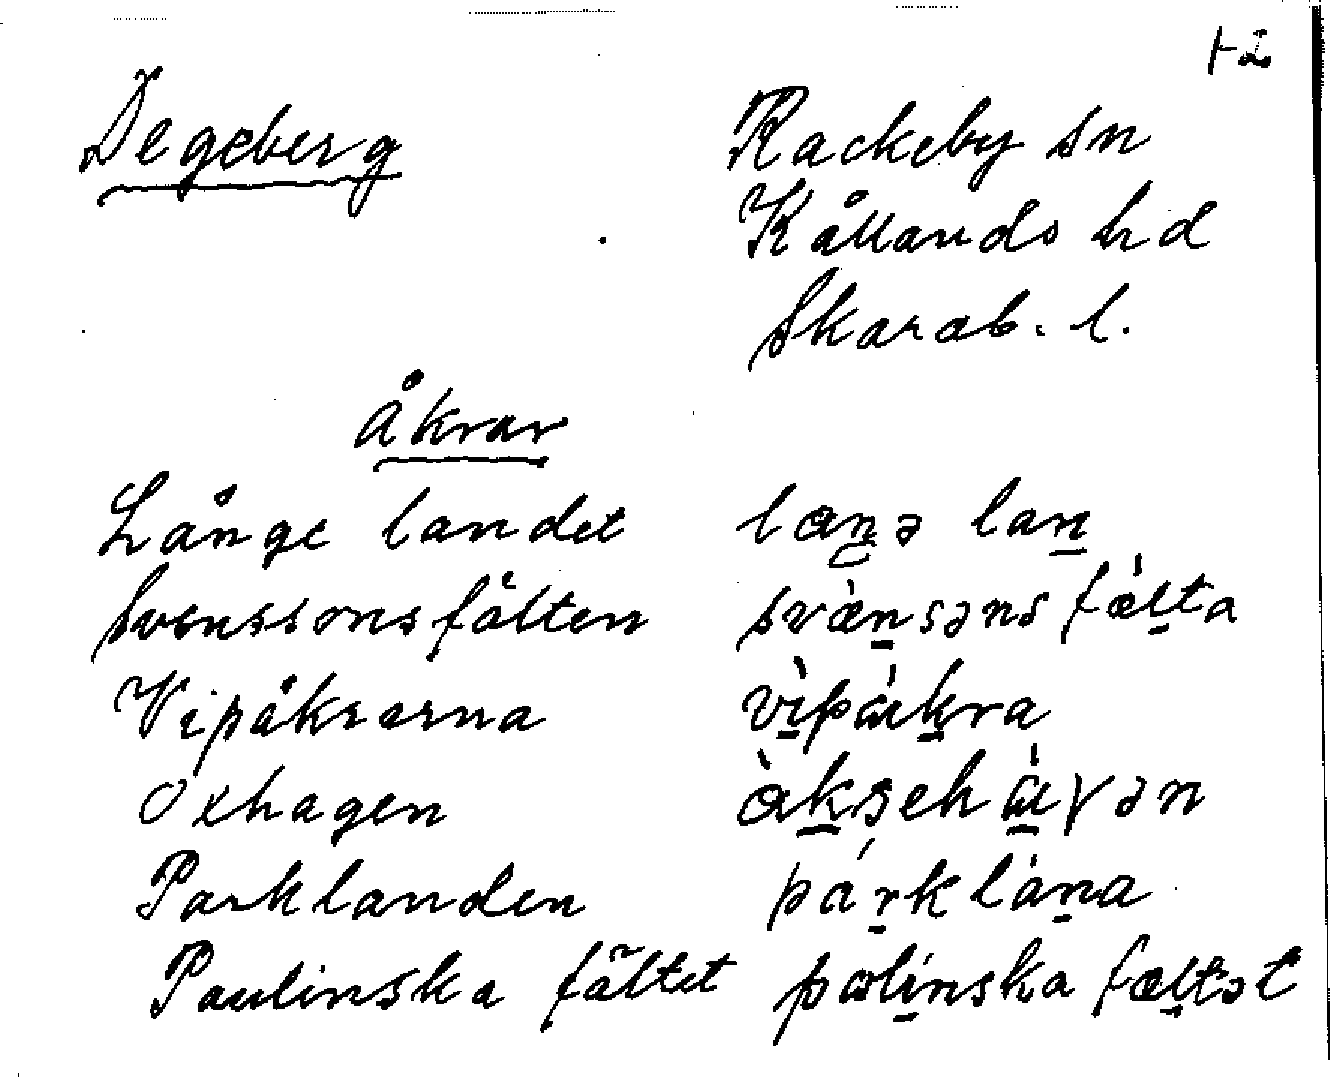 12
Degeberg Rackeby sn
Kållands hd
Skarab. l.
Åkrar
Långe landet laŋə lan̲
Svenssonsfälten svæ̀n̲səns fæ̍l̲ta
Vipåkrarna
Oxhagen
Parklanden pár̲klàn̲a
Paulinska fältet polín̲ska fæl̲tət